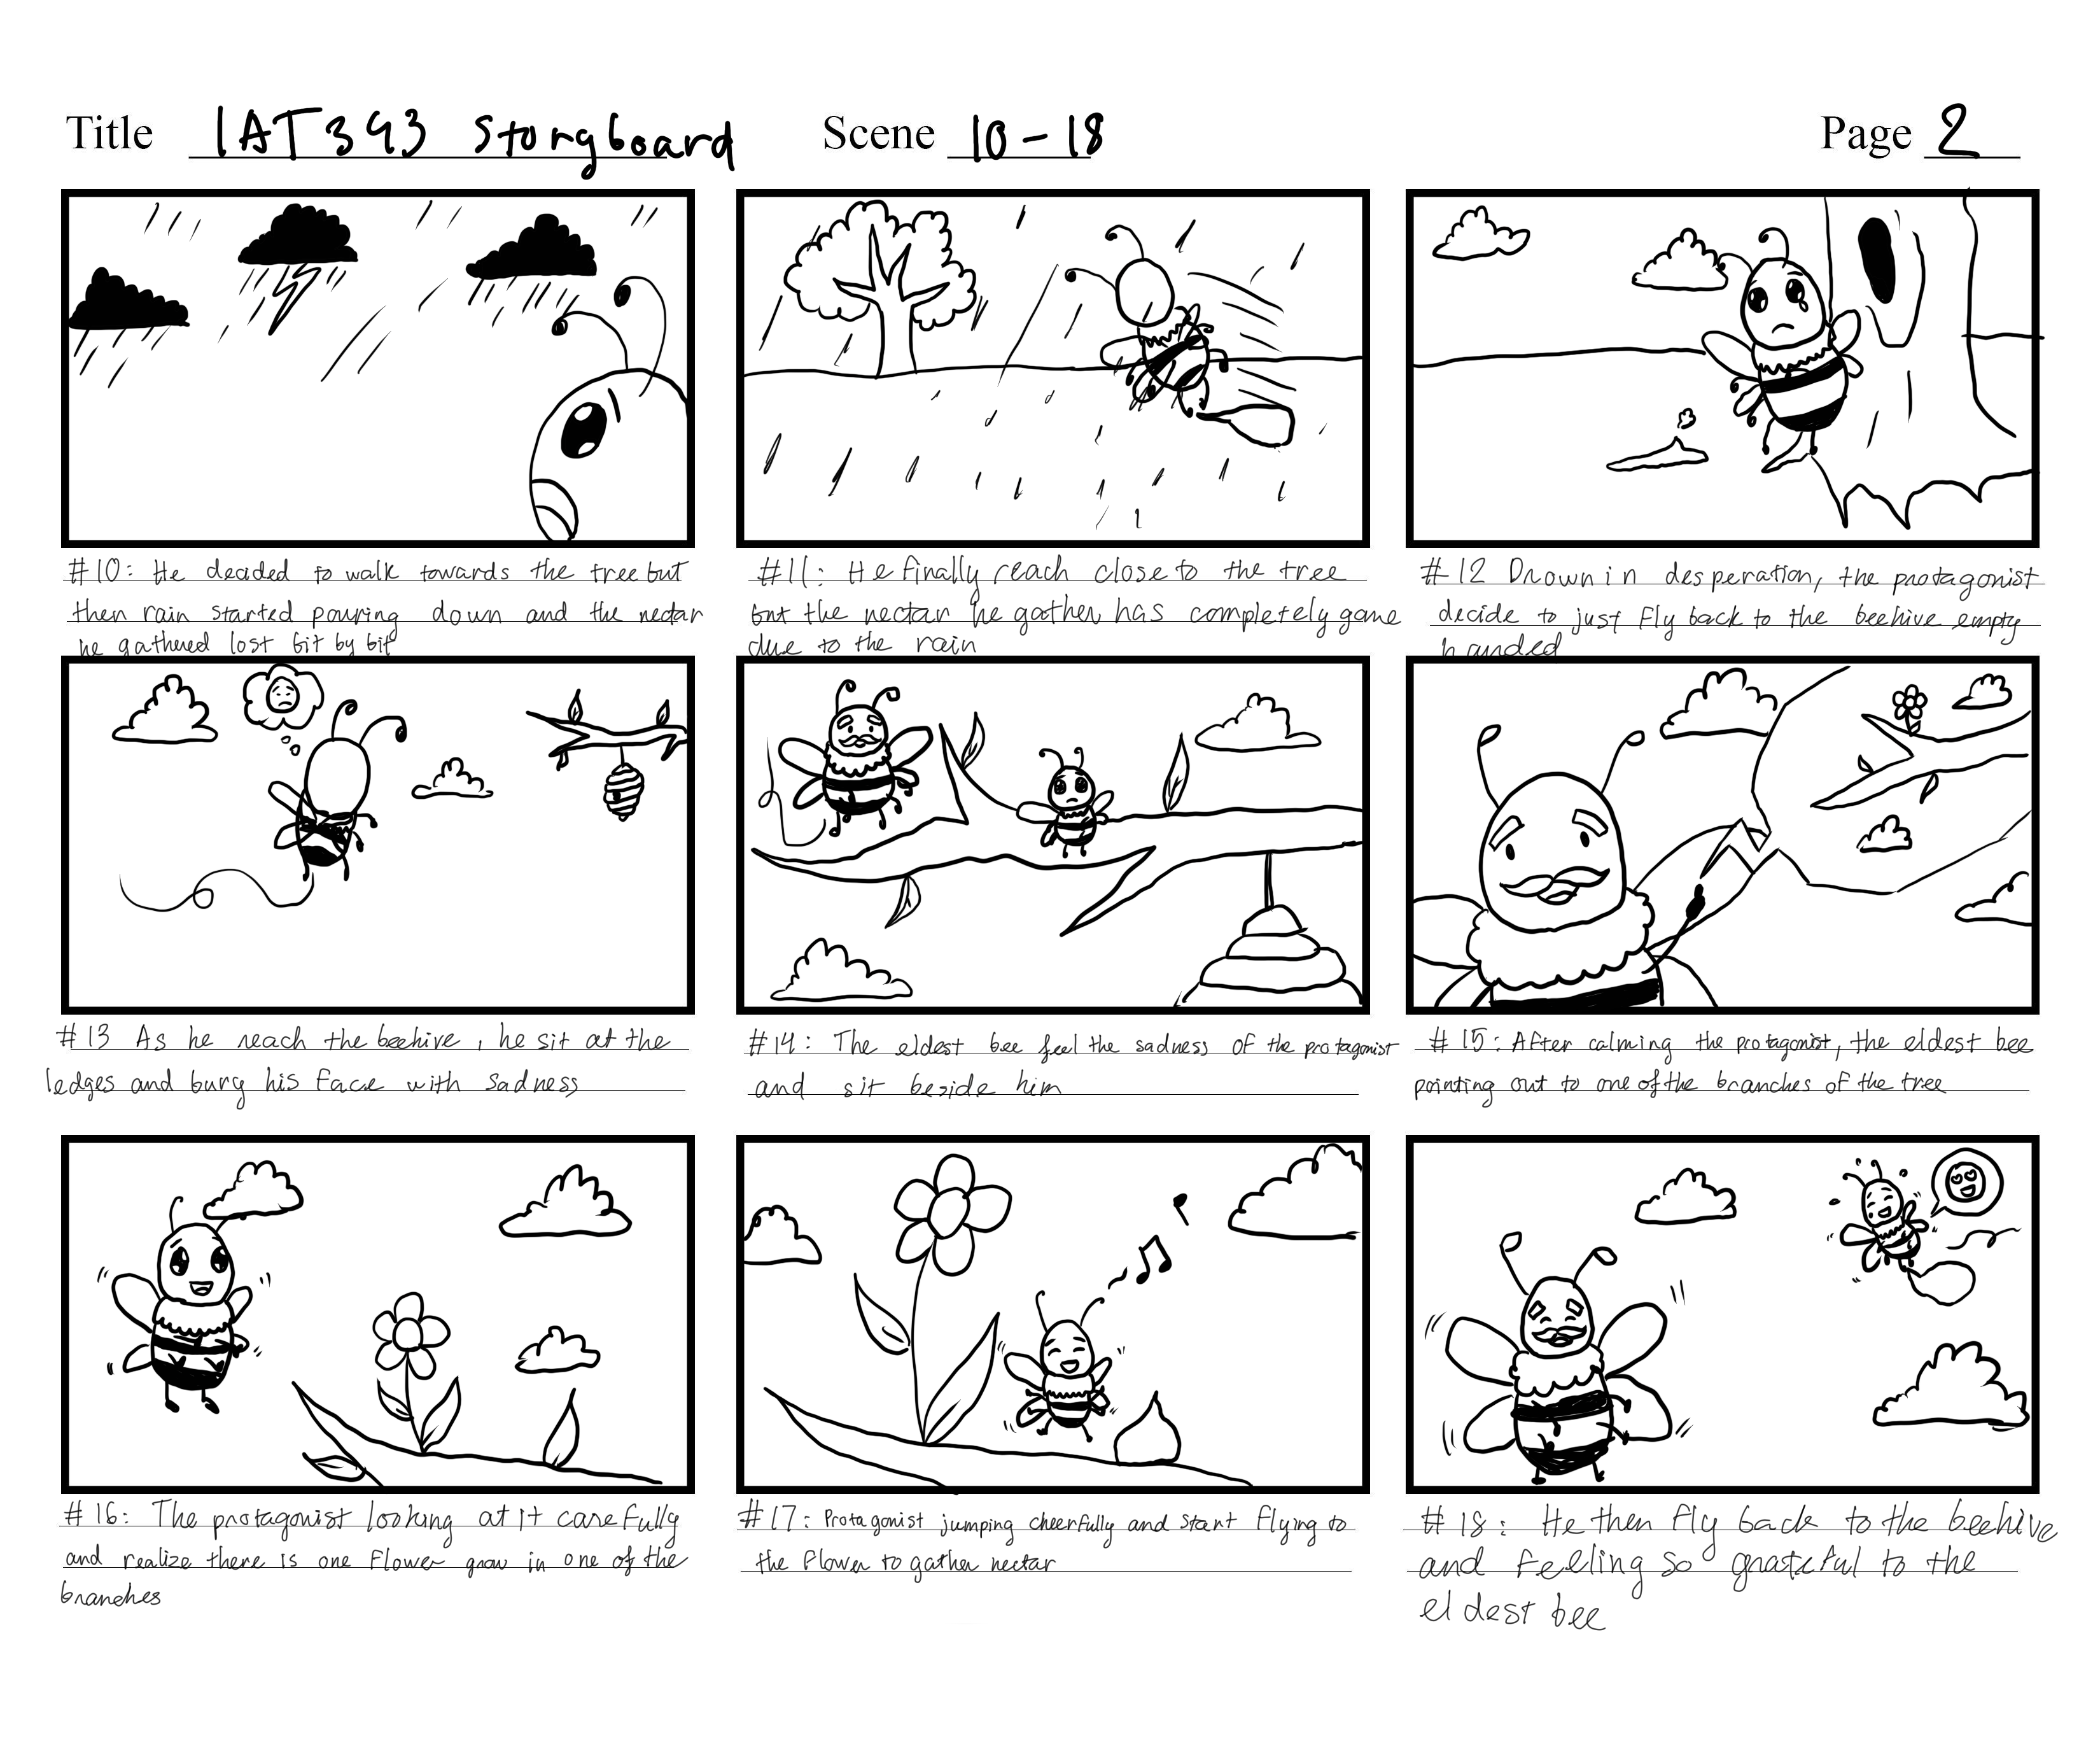 Title IAT343 Storyboard Scene 10-18 Page 2
#10: He decided to walk towards the tree but
then rain started pouring down and the nectar
he gathered lost bit by bit
#11: He finally reach close to the tree
but the nectar he gather has completely gone
due to the rain
#12 Drown in desperation, the protagonist
decide to just fly back to the beehive empty
handed
#13 As he reach the beehive, he sit at the
ledges and bury his face with sadness
#14: The eldest bee feel the sadness of the protagonist
and sit beside him
#15: After calming the protagonist, the eldest bee
pointing out to one of the branches of the tree
#16: The protagonist looking at it carefully
and realize there is one flower grow in one of the
branches
#17: Protagonist jumping cheerfully and start flying to
the flower to gather nectar
#18: He then fly back to the beehive
and feeling so grateful to the
eldest bee